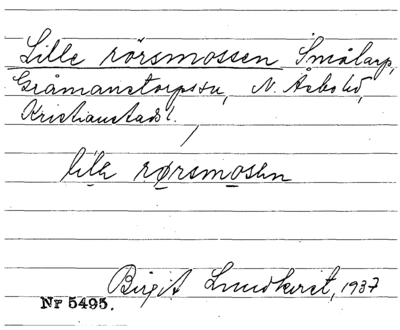 Lille rörsmossen Smålarp,
Gråmanstorpssn, N. Åsbo hd,
Kristianstads l.
lilɛ rørsmosɛn
Birgit Lundkvist, 1937
Nr 5495.